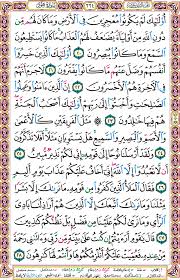 أُوْلَٰٓئِكَ لَمْ يَكُونُوا۟ مُعْجِزِينَ فِى ٱلْأَرْضِ وَمَا كَانَ لَهُم
مِّن دُونِ ٱللَّهِ مِنْ أَوْلِيَآءَ يُضَٰعَفُ لَهُمُ ٱلْعَذَابُ مَا كَانُوا۟ يَسْتَطِيعُونَ
ٱلسَّمْعَ وَمَا كَانُوا۟ يُبْصِرُونَ ٢٠ أُوْلَٰٓئِكَ ٱلَّذِينَ خَسِرُوٓا۟
أَنفُسَهُمْ وَضَلَّ عَنْهُم مَّا كَانُوا۟ يَفْتَرُونَ ٢١ لَا جَرَمَ أَنَّهُمْ
فِى ٱلْءَاخِرَةِ هُمُ ٱلْأَخْسَرُونَ ٢٢ إِنَّ ٱلَّذِينَ ءَامَنُوا۟ وَعَمِلُوا۟
ٱلصَّٰلِحَٰتِ وَأَخْبَتُوٓا۟ إِلَىٰ رَبِّهِمْ أُوْلَٰٓئِكَ أَصْحَٰبُ ٱلْجَنَّةِ
هُمْ فِيهَا خَٰلِدُونَ ٢٣ مَثَلُ ٱلْفَرِيقَيْنِ كَٱلْأَعْمَىٰ
وَٱلْأَصَمِّ وَٱلْبَصِيرِ وَٱلسَّمِيعِ هَلْ يَسْتَوِيَانِ مَثَلًا أَفَلَا تَذَكَّرُونَ
٢٤ وَلَقَدْ أَرْسَلْنَا نُوحًا إِلَىٰ قَوْمِهِۦٓ إِنِّى لَكُمْ نَذِيرٌ مُّبِينٌ
٢٥ أَن لَّا تَعْبُدُوٓا۟ إِلَّا ٱللَّهَ إِنِّىٓ أَخَافُ عَلَيْكُمْ عَذَابَ يَوْمٍ أَلِيمٍ
٢٦ فَقَالَ ٱلْمَلَأُ ٱلَّذِينَ كَفَرُوا۟ مِن قَوْمِهِۦ مَا نَرَىٰكَ إِلَّا
بَشَرًا مِّثْلَنَا وَمَا نَرَىٰكَ ٱتَّبَعَكَ إِلَّا ٱلَّذِينَ هُمْ أَرَاذِلُنَا بَادِىَ
ٱلرَّأْىِ وَمَا نَرَىٰ لَكُمْ عَلَيْنَا مِن فَضْلٍۭ بَلْ نَظُنُّكُمْ كَٰذِبِينَ
٢٧ قَالَ يَٰقَوْمِ أَرَءَيْتُمْ إِن كُنتُ عَلَىٰ بَيِّنَةٍ مِّن رَّبِّى وَءَاتَىٰنِى
رَحْمَةً مِّنْ عِندِهِۦ فَعُمِّيَتْ عَلَيْكُمْ أَنُلْزِمُكُمُوهَا وَأَنتُمْ لَهَا كَٰرِهُونَ ٢٨